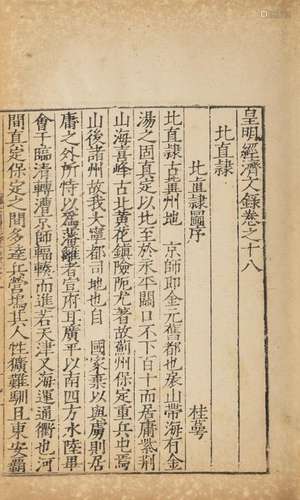 皇明經濟文錄卷之十八
北直隸
北直隸圖序
桂萼
北直隸古冀州地　京師即金元舊都也表山帶海有金
湯之固真定以北至於永平關口不下百十而居庸紫荊
山海喜峰古北黃花鎮險阨尤著故薊州保定重兵屯焉
山後諸州故我大寧都司地也自　國家棄以與虜則居
庸之外所恃以為藩籬者宣府耳廣平以南四方水陸畢
會于臨清轉漕京師輻輳而進若天津又海運通衢也河
間真定保定之間多達兵營塢其人性獷難馴且東安霸